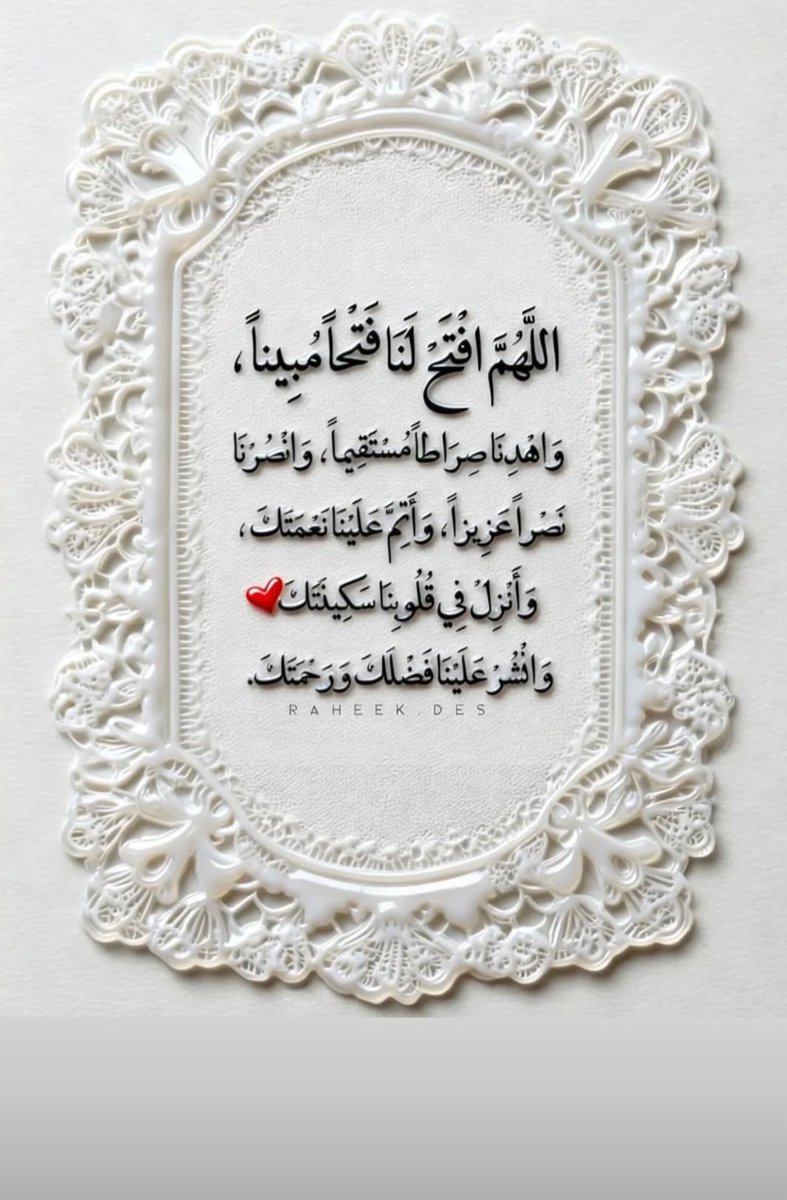 اللَّهُمَّ افْتَحْ لَنَا فَتْحاً مُبِيناً،
وَاهْدِنَا صِرَاطاً مُسْتَقِيماً، وَانْصُرْنَا
نَصْراً عَزِيزاً، وَأَتِمَّ عَلَيْنَا نَعْمَتَكَ،
وَأَنْزِلْ فِي قُلُوبِنَا سَكِينَتَكَ❤️
وَانْشُرْ عَلَيْنَا فَضْلَكَ وَرَحْمَتَكَ.
RAHEEK.DES